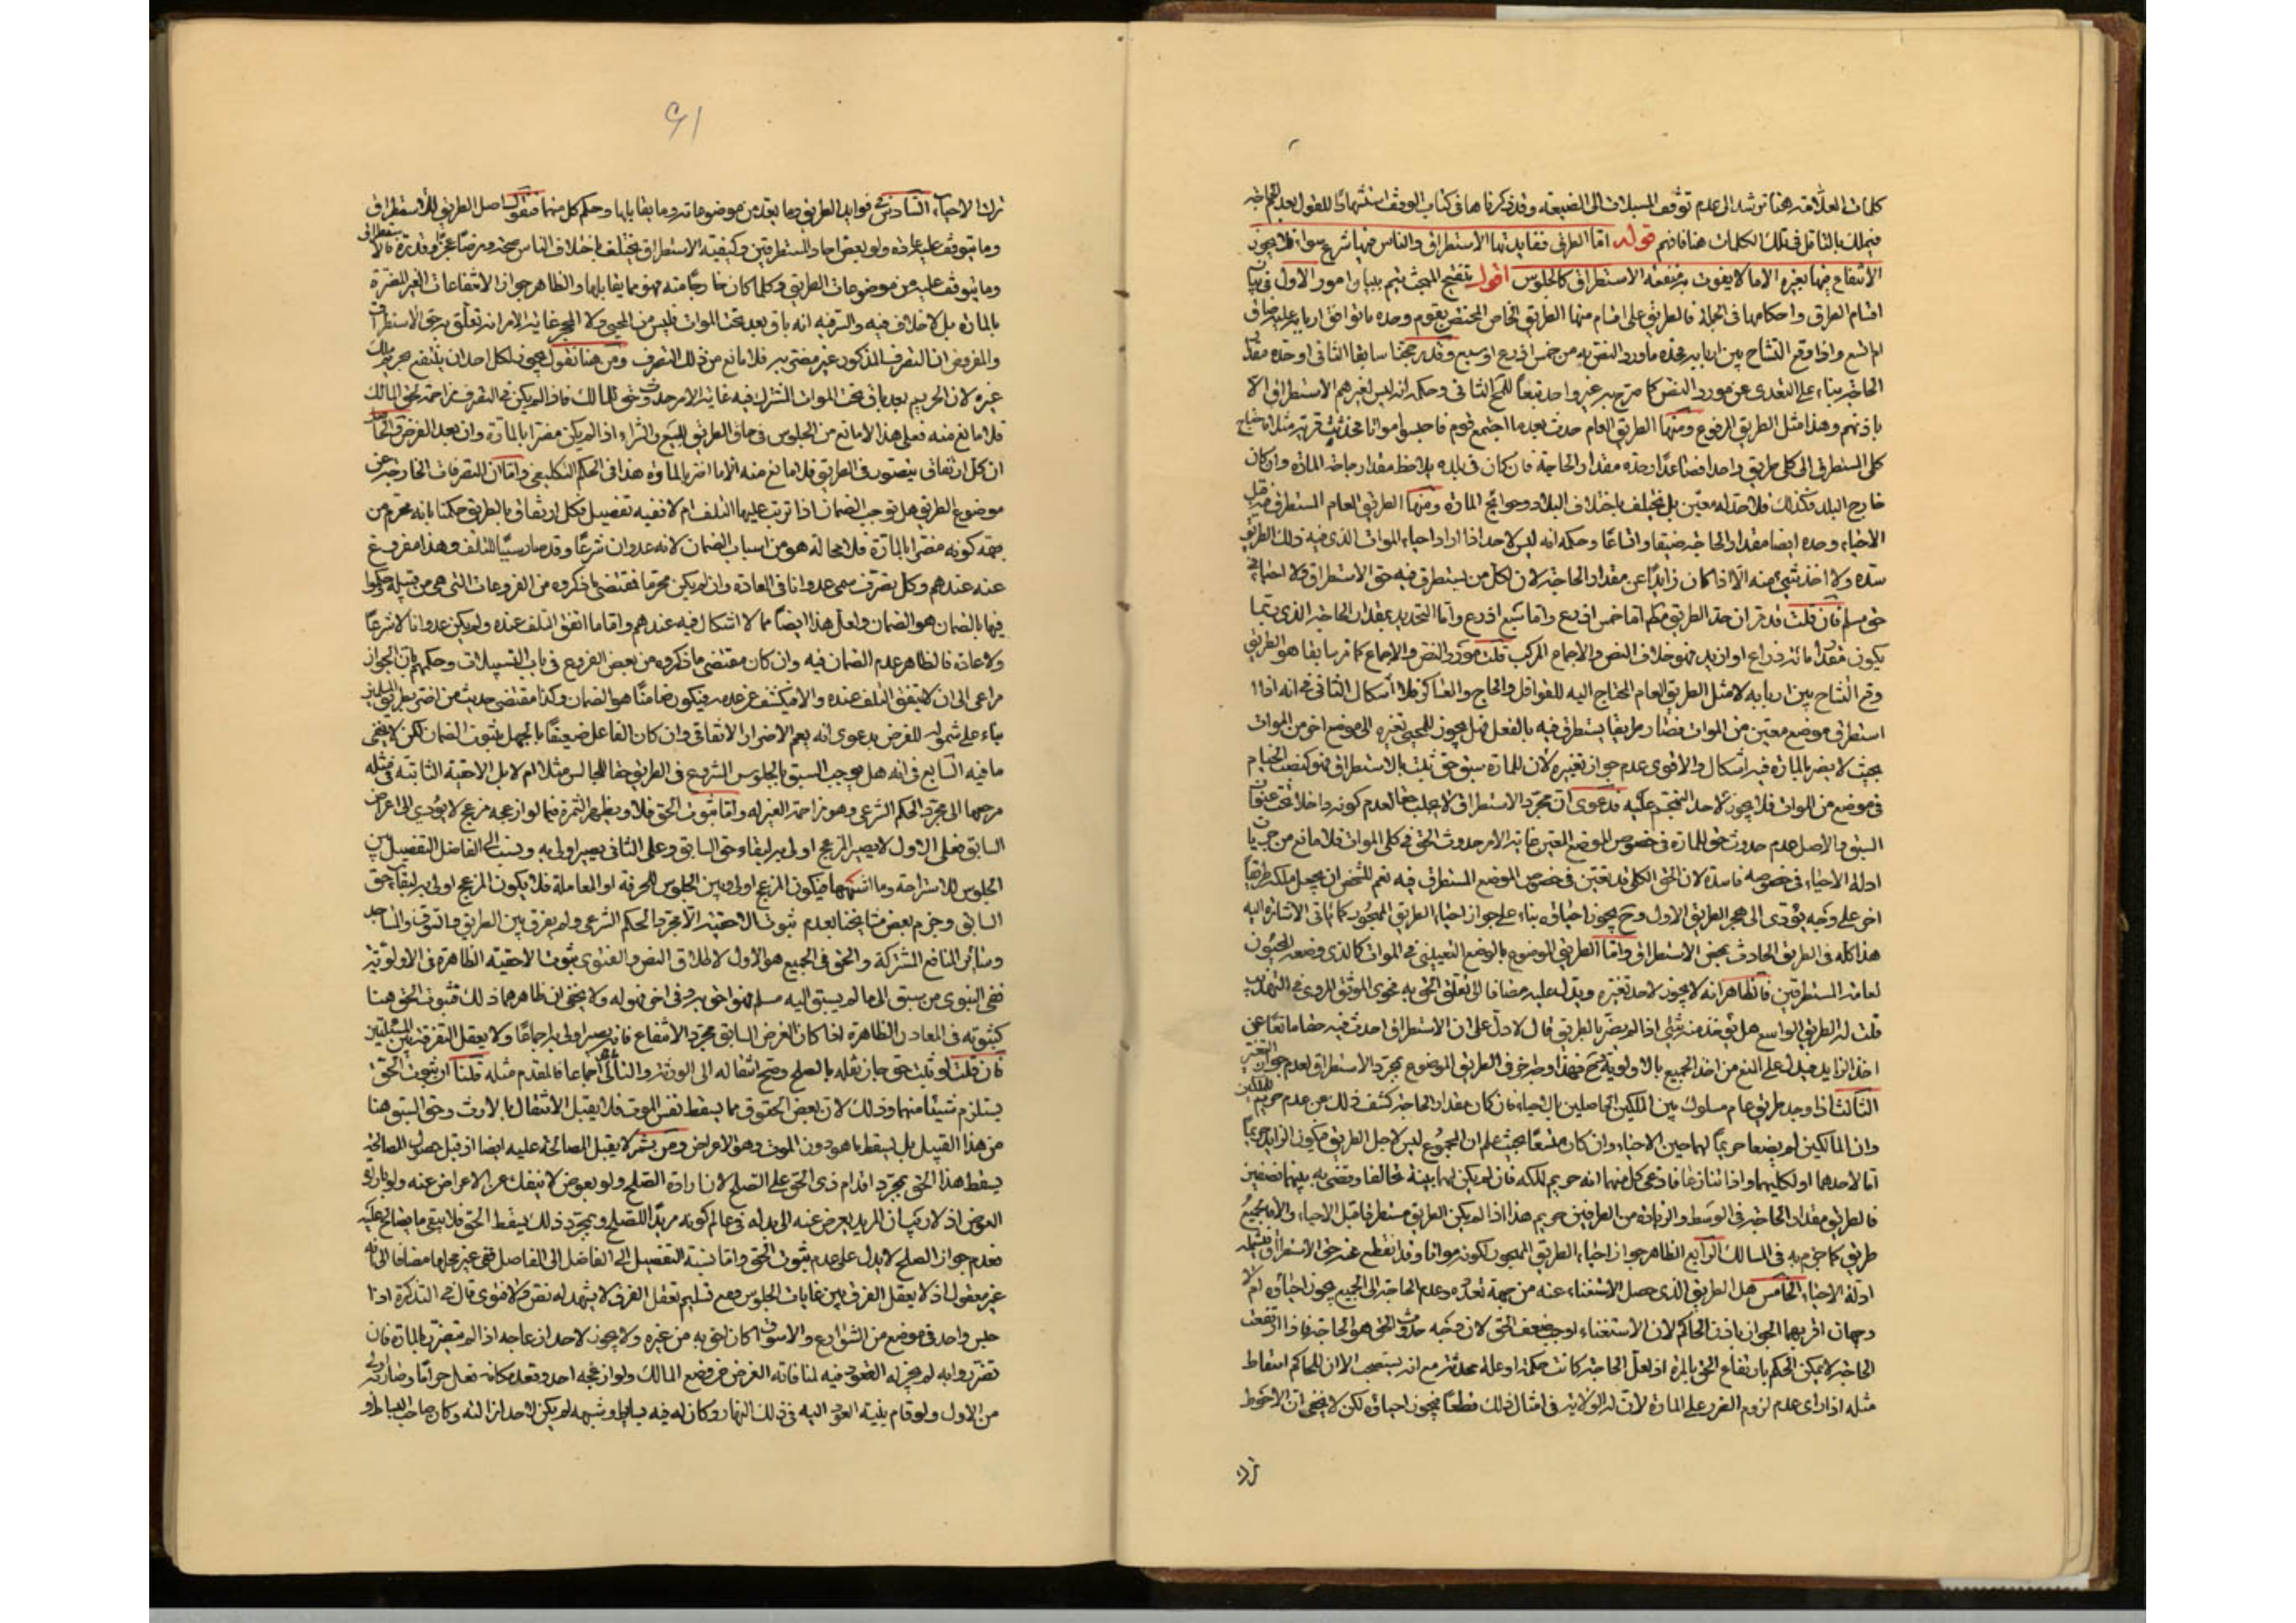 كلمات العلامة هنا ترشد الى عدم توقف السبلات الى الضيعة وقد ذكرناها فى كتاب الوقف استشهادًا للقول بعدم
فعليك بالتامل فى تلك الكلمات هنا فافهم قوله اما الطرق ففايدتها الاستطراق والناس فيها شرع سواء فلا يجوز
الانتفاع فيها بغيره الا ما لا يفوت به منفعة الاستطراق كالجلوس اقول تنقيح المبحث يتم ببيان امور الاول فى بيان
اقسام الطرق واحكامها فى الجملة فالطريق على اقسام منها الطريق الخاص المختص بقوم وحده ما توافق اربابه عليه ضاق
ام اتسع واذا وقع التشاح بين اربابه فحده ما ورد النص به من خمس اذرع او سبع وقد مر مبحثنا سابقا الثانى او حده مقدار
الحاجة بناء على التعدى عن مورد النص كما صرح به غير واحد تبعًا للمحقق الثانى وحكمه انه ليس لغيرهم الاستطراق الا
باذنهم وهذا مثل الطريق المرفوع ومنها الطريق العام حدث بعد ما اجتمع قوم فاحيوا مواتا فحدثت قرية مثلا فاحتاج
كل المستطرق الى كل طريق واحد افضا عدا وحده مقدار الحاجة فان كان فى بلده يلاحظ مقدار حاجة المارة وان كان
خارج البلد فكذلك فلا حد له معين بل يختلف باختلاف البلاد وحوائج المارة ومنها الطريق العام المستطرق فيه قبل
الاحياء وحده ايضا مقدار الحاجة ضيقا واتساعًا وحكمه انه ليس لاحد اذا اراد احياء الموات الذى فيه ذلك الطريق
سده ولا اخذ شىء منه الا اذا كان زايدًا عن مقدار الحاجة لان لكل من يستطرق فيه حق الاستطراق ولا احياء فى
حق مسلم فان قلت قد مر ان حد الطريق مطلقا اما خمس اذرع واما سبع اذرع واما التحديد بمقدار الحاجة الذى ربما
يكون مقدار مائة ذراع او ازيد فهو خلاف النص والاجماع المركب قلت مورد النص والاجماع كما مر سابقا هو الطريق
وقع التشاح بين اربابه لا مثل الطريق العام المحتاج اليه للقوافل والحاج والعساكر فلا اشكال الثانى فى انه اذا
استطرق موضع معين من الموات فصار طريقا يستطرق فيه بالفعل فهل يجوز للمحيى تغيره الى موضع اخر من الموات
بحيث لا يضر بالمارة فيه اشكال والاقوى عدم جواز تغييره لان للمارة سبق حق ثبت بالاستطراق فهو كنصب الخيام
فى موضع من الموات فلا يجوز لاحد التهجم عليه فدعوى ان مجرد الاستطراق لا يجلب حقا لعدم كونه داخلا تحت عنوان
السبق والاصل عدم حدوث حق للمارة فى خصوص الموضع المعين غاية الامر حدوث الحق فى كلى الموات فلا مانع من جريان
ادلة الاحياء فى خصوصه فاسدة لان الحق الكلى قد تعين فى خصوص الموضع المستطرق فيه نعم للشخص ان يجعل ملكه طريقا
اخر على وجه يؤدى الى هجر الطريق الاول وح يجوز احياؤه بناء على جواز احياء الطريق المهجور كما ياتى الاشارة اليه
هذا كله فى الطريق الحادث بمحض الاستطراق واما الطريق الموضوع بالوضع التعيينى فى الموات كالذى وضعه المحيون
لعامة المستطرقين فالظاهر انه لا يجوز لاحد تغيره ويدل عليه مضافا الى تعلق الحق به فحوى الموثق المروى فى التهذيب
قلت له الطريق الواسع هل يؤخذ منه شىء اذا لم يضر بالطريق قال لا دل على ان الاستطراق احدث فيه حقا مانعا عن
اخذ الزايد فيدل على المنع من اخذ الجميع بالاولوية
الثالث اذا وجد طريق عام مسلوك بين الملكين الحاصلين بالاحياء فان كان مقدار الحاجة كشف ذلك عن عدم حريم للملكين
وان المالكين لم يضعا حريمًا لهما حين الاحياء وان كان متسعًا بحيث علم ان المجموع ليس لاجل الطريق فيكون الزايد حريمًا
اما لاحدهما او لكليهما واذا تنازعا فادعى كل منهما انه حريم لملكه فان لم يكن لهما بينة تحالفا وقضى به بينهما نصفين
فالطريق مقدار الحاجة فى الوسط والزيادة من الطرفين حريم هذا اذا لم يكن الطريق مستطرقا قبل الاحياء والا فالجميع
طريق كما جزم به فى المسالك الرابع الظاهر جواز احياء الطريق المهجور لكونه مواتا وقد انقطع عنه حق الاستطراق فيشمله
ادلة الاحياء الخامس هل الطريق الذى حصل الاستغناء عنه من جهة تعدده وعدم الحاجة الى الجميع يجوز احياؤه ام لا
وجهان اقربهما الجواز باذن الحاكم لان الاستغناء اوجب ضعف الحق لان وجه حدوث الحق هو الحاجة فاذا ارتفعت
الحاجة لا يمكن الحكم بارتفاع الحق بالمرة اذ لعل الحاجة كانت حكمة او علة محدثة مع انه يستصحب الا ان للحاكم اسقاط
مثله اذا راى عدم لزوم الضرر على المارة لان له الولاية فى امثال ذلك قطعًا فيجوز احياؤه لكن لا يخفى ان الاحوط
ترك
٦١
ترك الاحياء السادس فى فوايد الطريق وما يعد من موضوعاته وما يقابلها وحكم كل منها فنقول اصل الطريق للاستطراق
وما يتوقف عليه عادة ولو بعض احاد المستطرقين وكيفية الاستطراق يختلف باختلاف الناس صحة ومرضًا عجزًا وقدرة فالاستطراق
وما يتوقف عليه من موضوعات الطريق وكلما كان خارجًا منه فهو مما يقابلها والظاهر جواز الانتفاعات الغير المضرة
بالمارة بل لا خلاف فيه والسر فيه انه باق بعد تحت الموات فليس من المحيى ولا المحجر غاية الامر انه تعلق به حق الاستطراق
والمفروض ان التصرف المذكور غير مضر به فلا مانع من ذلك التصرف ومن هنا نقول يجوز لكل احد ان ينتفع بحريم ملك
غيره لان الحريم بعد باق تحت الموات المشترك فيه غاية الامر حدوث حق للمالك فاذا لم يكن فى التصرف مزاحمة لحق المالك
فلا مانع منه فعلى هذا لا مانع من الجلوس فى حاق الطريق للبيع والشراء اذا لم يكن مضرا بالمارة وان بعد الفرض
ان كل ارتفاق يتصور فى الطريق فلا مانع منه الا ما اضر بالمارة هذا فى الحكم التكليفى واما ان التصرفات الخارجة عن
موضوع الطريق هل توجب الضمان اذا ترتب عليها التلف ام لا ففيه تفصيل فكل ارتفاق بالطريق حكمنا بانه محرم من
جهة كونه مضرا بالمارة فلا محالة هو من اسباب الضمان لانه عدوان شرعًا وقد صار سببًا للتلف وهذا مفروغ
عنه عندهم وكل تصرف سمى عدوانا فى العادة وان لم يكن محرما فمقتضى ما ذكروه من الفروعات التى هى من قبيله حكموا
فيها بالضمان هو الضمان ولعل هذا ايضًا مما لا اشكال فيه عندهم واما ما اتفق التلف عنده ولم يكن عدوانا لا شرعًا
ولا عادة فالظاهر عدم الضمان فيه وان كان مقتضى ما ذكروه من بعض الفروع فى باب التسبيلات وحكمهم بان الجواز
مراعى الى ان لا يتفق التلف عنده والا فيكشف عن عدمه فيكون ضامنًا هو الضمان وكذا مقتضى حديث من اضر بطريق المسلمين
بناء على شموله للفرض بدعوى انه يعم الاضرار الاتفاقى وان كان الفاعل ضيعفًا بالجهل بثبوت الضمان لكن لا يخفى
ما فيه السابع فى انه هل يوجب السبق بالجلوس المشروع فى الطريق حقا للجالس مثلا ام لا بل الاحقية الثابتة فى مثله
مرجعها الى مجرد الحكم الشرعى وهو مزاحمة الغير له واما ثبوت الحق فلا ويظهر الثمرة فيما لو ازعجه مزعج لا يؤدي الى اعراض
السابق فعلى الاول لا يصير المزعج اولى به لبقاء حق السابق وعلى الثانى يصير اولى به وينسب الى الفاضل التفصيل بين
الجلوس للاستراحة وما اشبهها فيكون المزعج اولى وبين الجلوس للحرفة او المعاملة فلا يكون المزعج اولى به لبقاء حق
السابق وجزم بعض مشايخنا بعدم ثبوت الاحقية الا مجرد الحكم الشرعى ولم يفرق بين الطريق والسوق والمساجد
وسائر المنافع المشتركة والحق فى الجميع هو الاول لاطلاق النص والفتوى بثبوت الاحقية الظاهرة فى الاولوية
ففى النبوى من سبق الى ما لم يسبق اليه مسلم فهو احق به وفى اخر فهو له ولا يخفى ان ظاهرهما ذلك فثبوت الحق هنا
كثبوته فى المعادن الظاهرة اذا كان الغرض السابق مجرد الانتفاع فانه يصير اولى به اجماعًا ولا يعقل التفرقة بين المسئلتين
فان قلت لو ثبت حق جاز نقله بالصلح وصح انتقاله الى الورثة والتالى باطل اجماعا فالمقدم مثله قلنا ان ثبوت الحق
يستلزم شيئا منهما وذلك لان بعض الحقوق مما يسقط نفس الموت فلا يقبل الانتقال بالارث وحق السبق هنا
من هذا القبيل بل يسقط بما هو دون الموت وهو الاعراض ومن ثم لا يقبل المصالحة عليه ايضا اذ قبل حصول المصالحة
يسقط هذا الحق بمجرد اقدام ذى الحق على الصلح لان ارادة الصلح ولو بعوض لا ينفك عن الاعراض عنه ولو بارادة
العوض اذ لا ريب ان المريد يعرض عنه الى بدله فى عالم كونه مريدًا للصلح وبمجرد ذلك يسقط الحق فلا يبقى ما يصالح عليه
فعدم جواز الصلح لا يدل على عدم ثبوت الحق واما نسبة التفصيل الى الفاضل ففى غير محلها مضافا الى انه
غير معقول اذ لا يعقل الفرق بين غايات الجلوس ومع تسليم تعقل الفرق لا يشهد له نص ولا فتوى قال فى التذكرة اذا
جلس واحد فى موضع من الشوارع والاسواق كان احق به من غيره ولا يجوز لاحد ازعاجه اذا لم يتضرر بالمارة فان
تضرروا به لم يجز له القعود فيه لمنافاته الغرض من وضع المالك ولو ازعجه احد وقعد مكانه فعل حرامًا وصار اولى
من الاول ولو قام بنية العود اليه فى ذلك النهار وكان له فيه بساط او شبهه لم يكن لاحد ازالته وكان صاحب البساط او